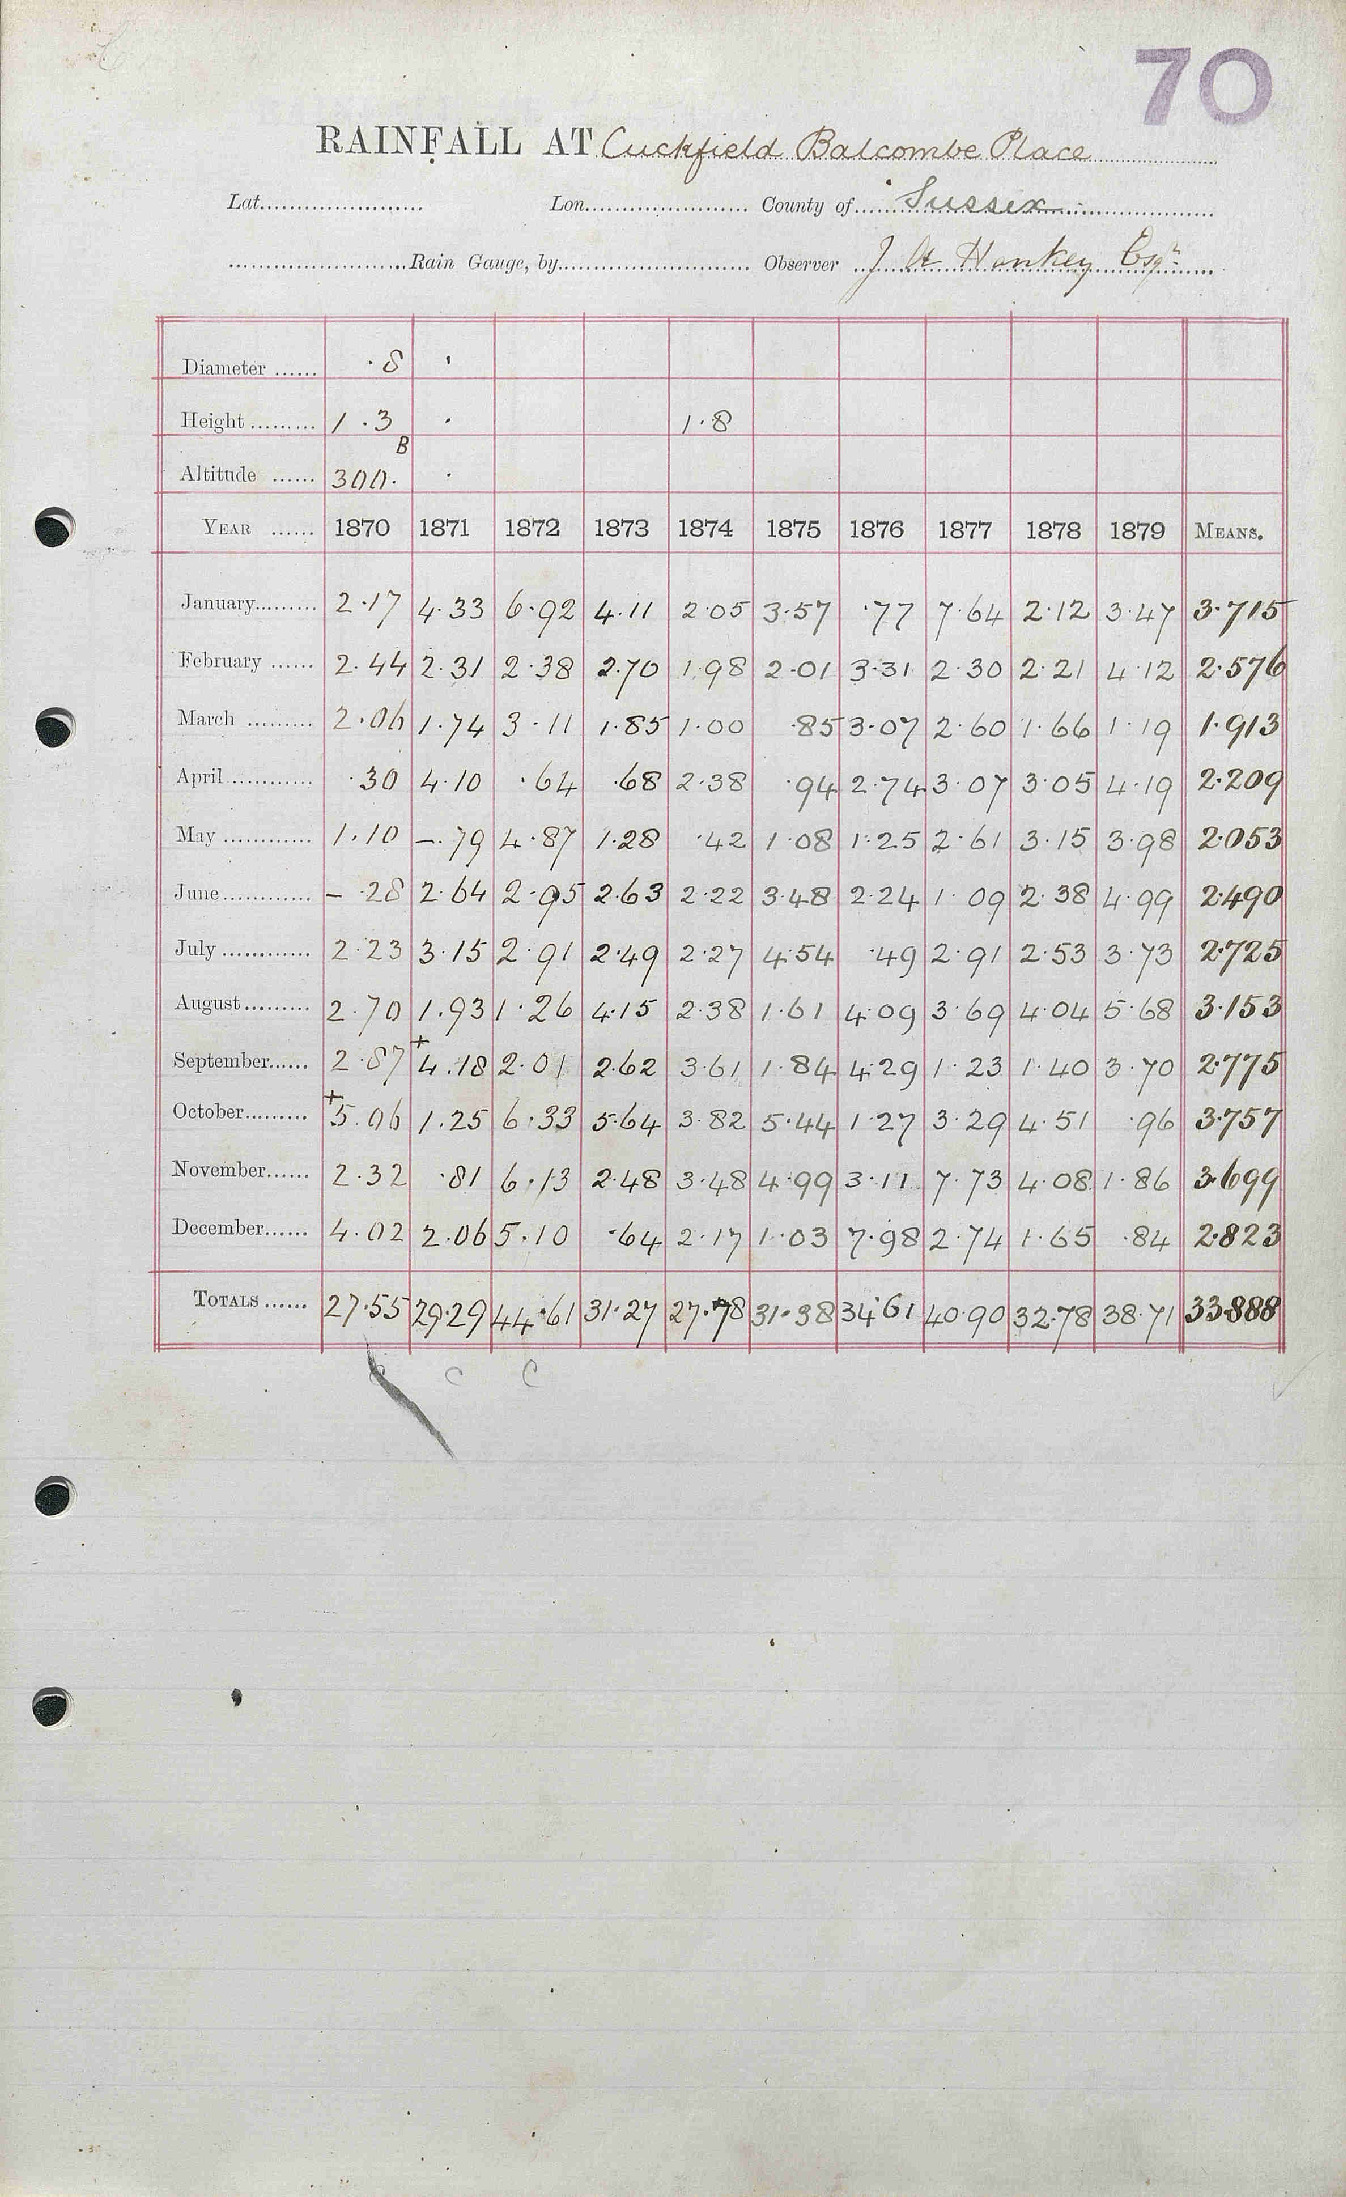 70
RAINFALL AT Cuckfield Balcombe Place
Lat. Lon. County of Sussex
Rain Gauge, by Observer J A Hankey Esqr
Diameter ·8 '
Height 1·3 · 1·8
B
Altitude 300· ·
YEAR 1870 1871 1872 1873 1874 1875 1876 1877 1878 1879 MEANS.
January 2·17 4·33 6·92 4·11 2·05 3·57 ·77 7·64 2·12 3·47 3·715
February 2·44 2·31 2·38 2·70 1·98 2·01 3·31 2·30 2·21 4·12 2·576
March 2·06 1·74 3·11 1·85 1·00 ·85 3·07 2·60 1·66 1·19 1·913
April ·30 4·10 ·64 ·68 2·38 ·94 2·74 3·07 3·05 4·19 2·209
May 1·10 –·79 4·87 1·28 ·42 1·08 1·25 2·61 3·15 3·98 2·053
June – ·28 2·64 2·95 2·63 2·22 3·48 2·24 1·09 2·38 4·99 2·490
July 2·23 3·15 2·91 2·49 2·27 4·54 ·49 2·91 2·53 3·73 2·725
August 2·70 1·93 1·26 4·15 2·38 1·61 4·09 3·69 4·04 5·68 3·153
September 2·87 +4·18 2·01 2·62 3·61 1·84 4·29 1·23 1·40 3·70 2·775
October +5·06 1·25 6·33 5·64 3·82 5·44 1·27 3·29 4·51 ·96 3·757
November 2·32 ·81 6·13 2·48 3·48 4·99 3·11 7·73 4·08 1·86 3·699
December 4·02 2·06 5·10 ·64 2·17 1·03 7·98 2·74 1·65 ·84 2·823
TOTALS 27·55 29·29 44·61 31·27 27·78 31·38 34·61 40·90 32·78 38·71 33·888
C C C